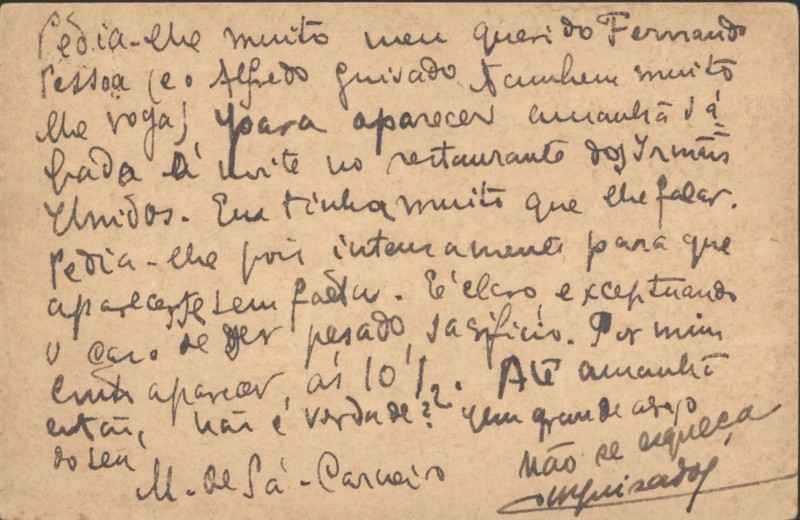 Pedia-lhe muito meu querido Fernando
Pessoa (e o Alfredo Guisado tambem muito
lhe roga) para aparecer amanhã sá=
bado á noite no restaurante dos Irmãos
Unidos. Eu tinha muito que lhe falar.
Pedia-lhe pois inteiramente para que
aparecesse sem falta. É claro, exceptuando
o caso de ser pesado sacrificio. Por mim
aparecer, ás 10 1/2. Até amanhã
então, não é verdade? Um grande abraço
do seu
M. de Sá-Carneiro
Não se esqueça
Guisado